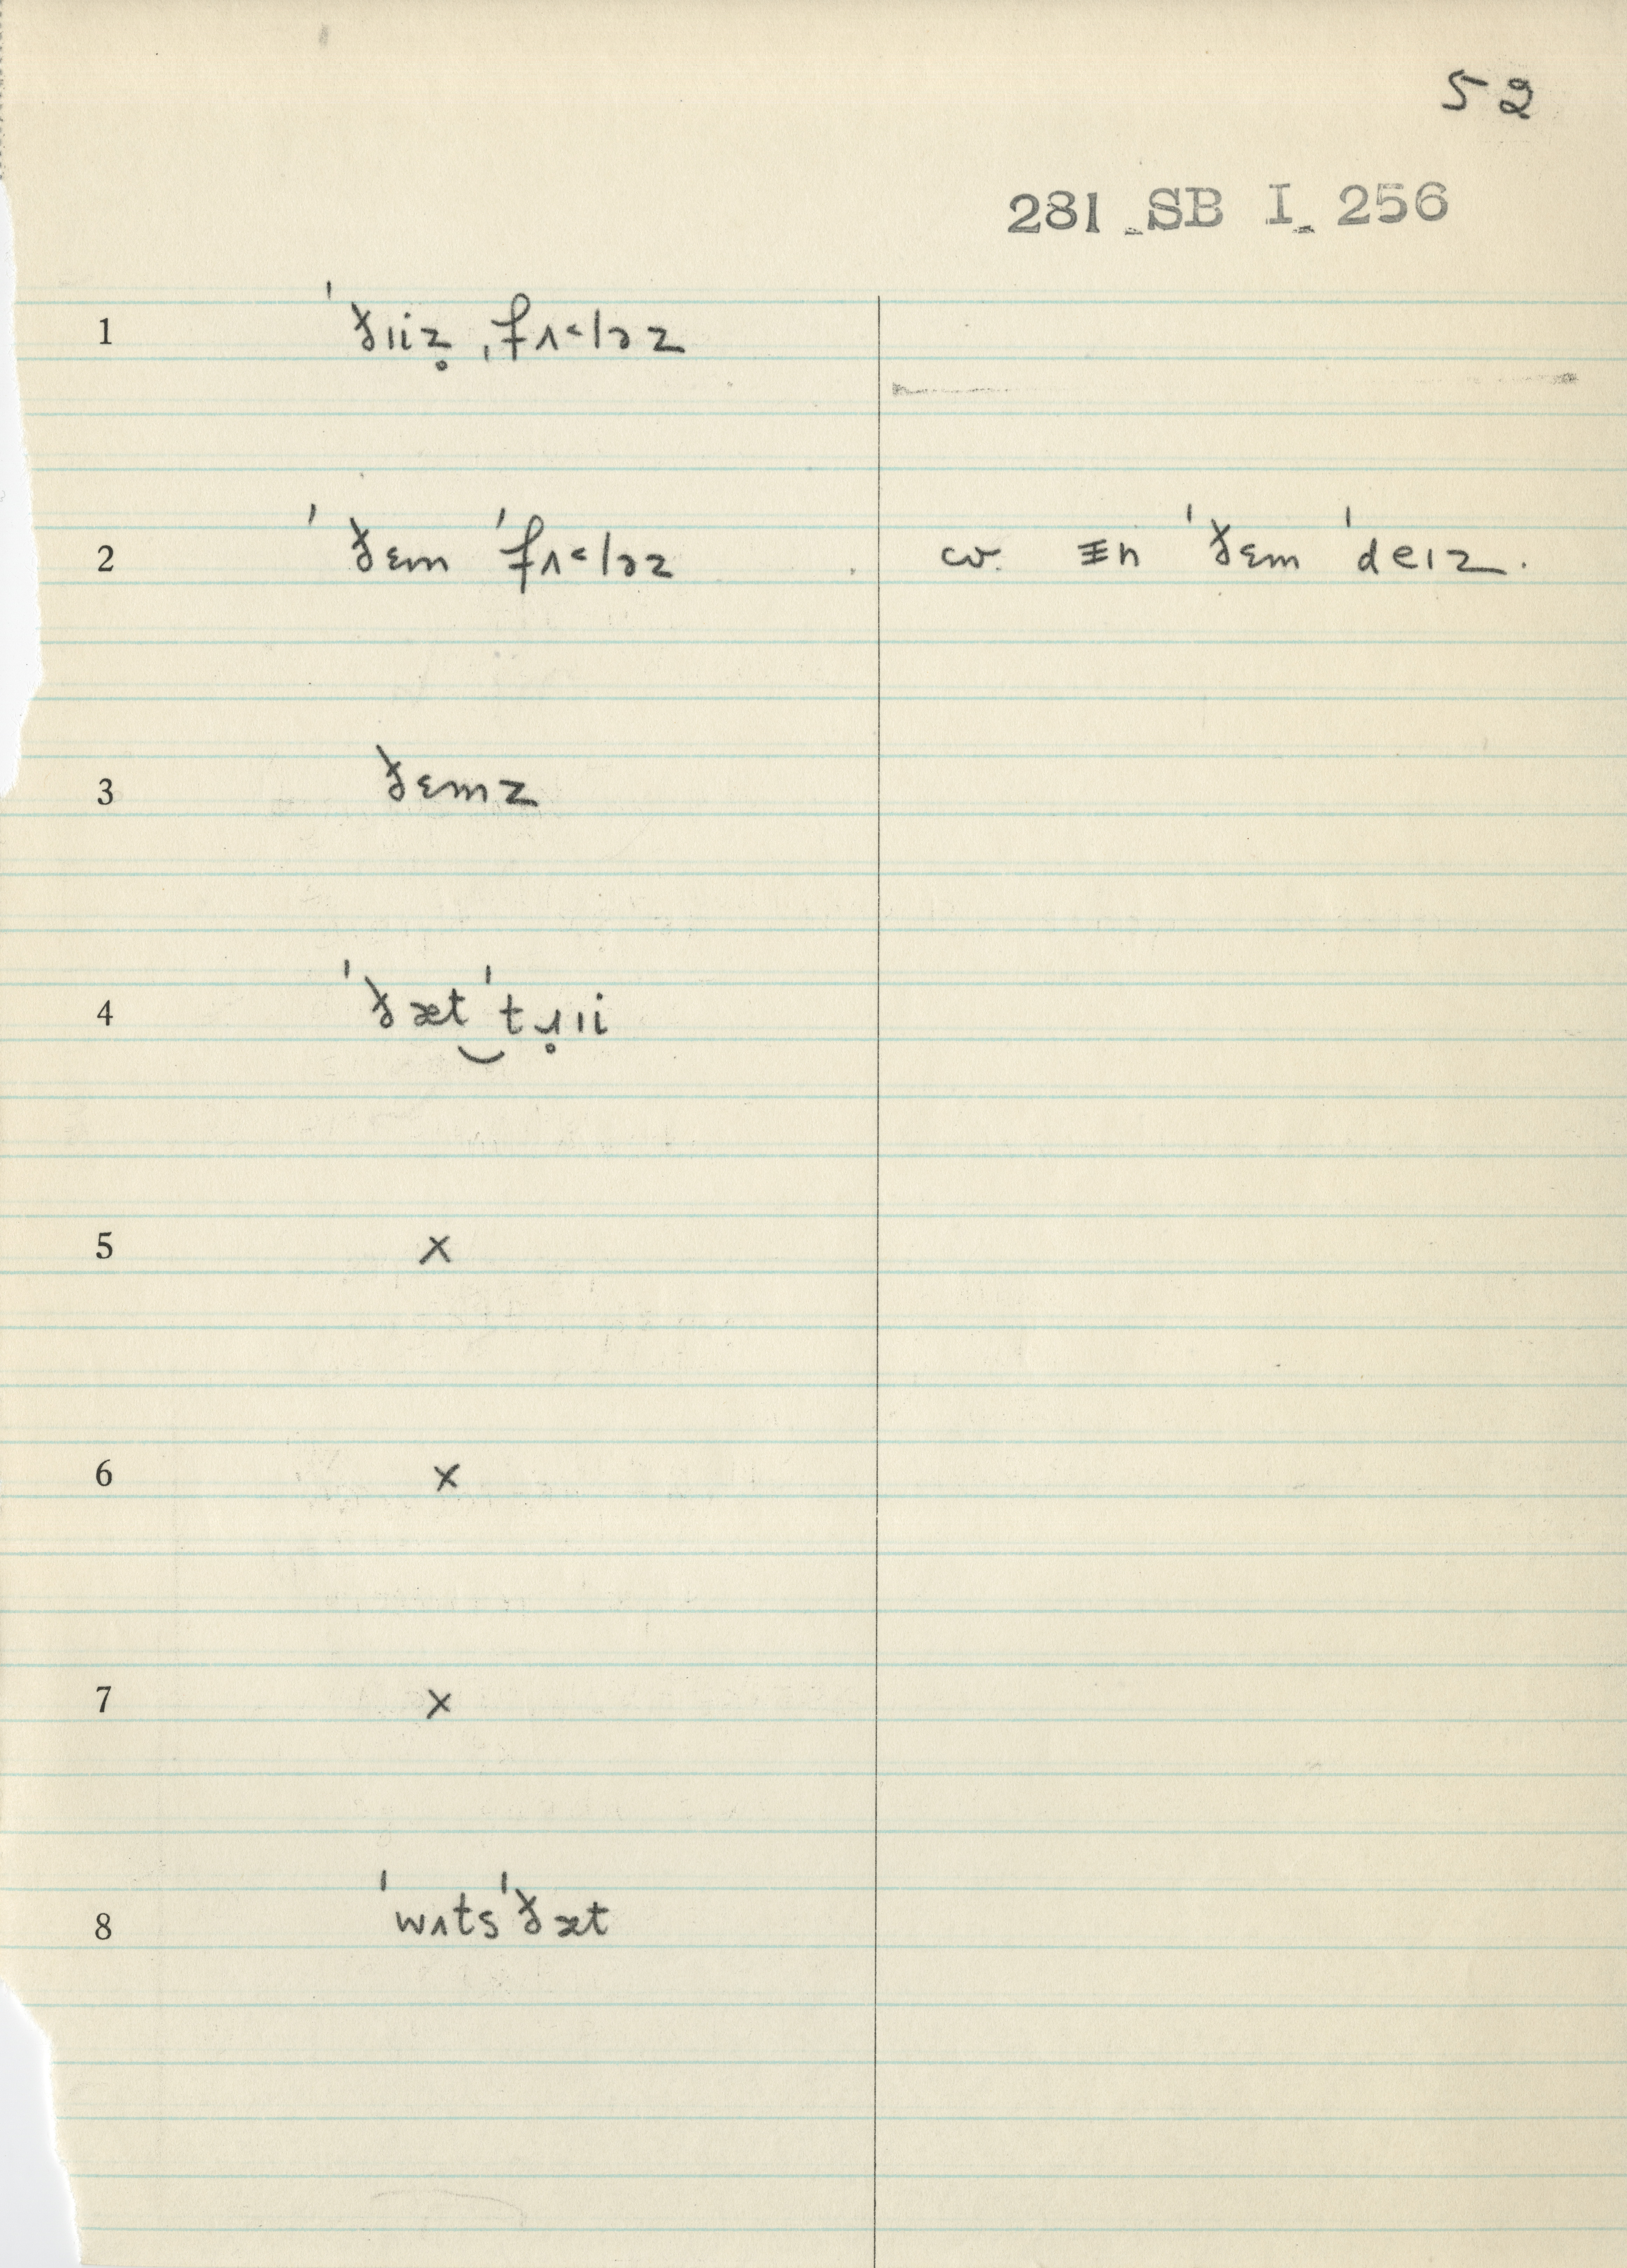 52
281 SB I 256
1 ˈðɪiz̥ ˌfʌ˂ləz
2 ˈðɛm ˈfʌ˂ləz cv. ɪn ˈðɛm ˈdeɪz.
3 ðɛmz
4 ˈðæt‿ˈtɹ̥ɪi
5 x
6 x
7 x
8 ˈwʌtsˈðæt